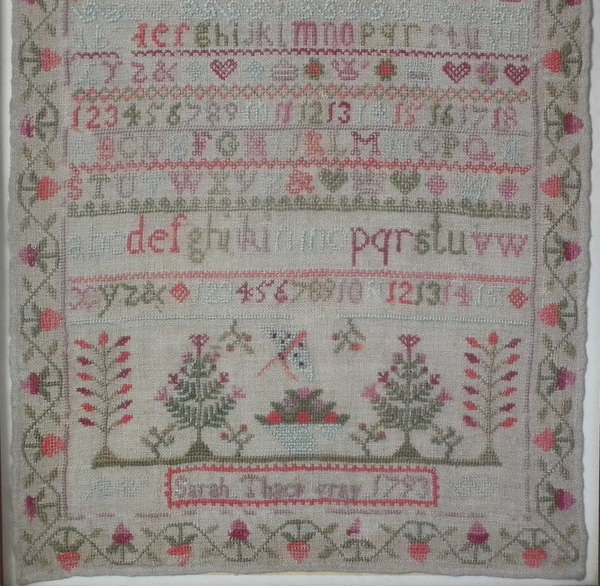 d e f g h i j k l m n o p q r s t u
y z &
1 2 3 4 5 6 7 8 9 10 11 12 13 14 15 16 17 18
B C D E F G H I K L M N O P Q R
S T U V W X Y Z &
a b c d e f g h i k l m n o p q r s t u v w
x y z & 1 2 3 4 5 6 7 8 9 10 11 12 13 14 15
Sarah Thack wray 1793